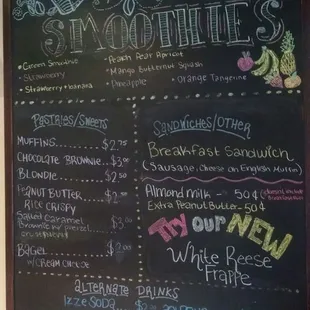 SMOOTHIES
• Green Smoothie
• Strawberry
• Strawberry + banana
• Peach Pear Apricot
• Mango Butternut Squash
• Pineapple
• Orange Tangerine
PASTRIES/SWEETS
MUFFINS $2.75
CHOCOLATE BROWNIE $3.00
BLONDIE $2.50
PEANUT BUTTER
RICE CRISPY
Salted Caramel
Brownie w/ pretzel
BAGEL
W/CREAM CHEESE
SANDWICHES/OTHER
Breakfast Sandwich
(Sausage, Cheese on English Muffin)
Almond milk - 50¢
Extra Peanut Butter - 50¢
Try Our NEW
White Reese
Frappe
ALTERNATE DRINKS
IZZE SODA